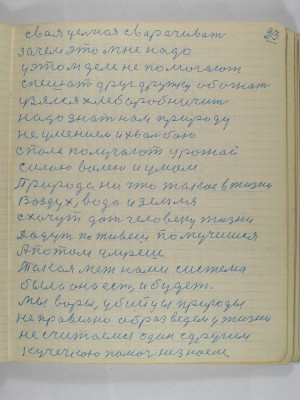 свая целная сварачиват
37
зачем это мне надо
у этом деле не помогают
спешат друг дружку обогнат
узялся хлебаробничит
надо знат нам природу
не умением и хвалбою
с поле получают урожай
силаю валею и умом
Природа ни что такое в жизни
Воздух, вода и земля
схочут дат человеку жизни
дадут поживеш помучишся
А потом умреш
Такая мет нами система
была она ест, и будет.
мы воры, убийцы природы
не правелно образ ведем у жизни
не считаемся один с другим
кучечкаю помоч не знаем